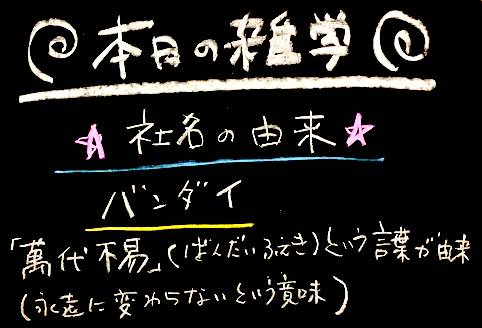 本日の雑学
☆社名の由来☆
バンダイ
「萬代不易」(ばんだいふえき)という言葉が由来
(永遠に変わらないという意味)